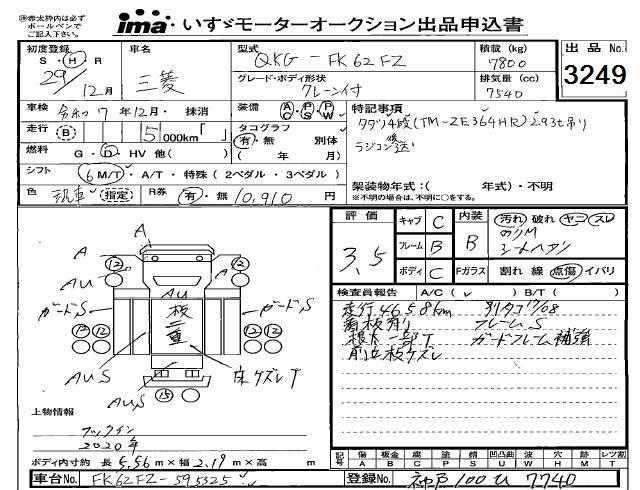 ※赤太枠内は必ず
ボールペンで
ご記入下さい。
ima いすゞモーターオークション出品申込書
初度登録 S・H・R 29/12月
車名 三菱
型式 QKG-FK62FZ
グレード・ボディ形状 クレーン付
積載(kg) 7800
排気量(cc) 7540
出品No. 3249
車検 令和7年12月・抹消
装備 AC・PS・PW
特記事項
タダノ4段(TM-ZE364HR)2.93t吊り
ラジコン
走行 B 5 000km「 」
タコグラフ 有・無 別体
( 年 月)
燃料 G・D・HV 他( )
シフト 6 M/T・A/T・特殊(2ペダル・3ペダル)
架装物年式:( 年式)・不明
※不明の場合は、不明に○をする。
色 (指定) R券 有・無 10,910円
評価 3.5
キャブ C 内装 B 汚れ 破れ ヤニ スレ
フレーム B
ボディ C Fガラス 割れ 線 点傷 イバリ
検査員報告 A/C( ) B/T( )
走行465.8km 別タコ17/08
看板有り フレームS
根太一部T ガードフレーム補強
前立板ケズレ
A A
12 12
AU
ガードS 板二重 ガードS
13 12 12 12
AUS 床ケズレT
AUS 15
上物情報
フックイン
2020年
ボディ内寸約 長5.56m×幅2.19m×高 m
記号 傷 板金 腐 塗 錆 凹凸曲 波 穴 補修跡 交換 要交換
A B C P S U W H M X T
車台No. FK62FZ-595325
登録No. 神戸100ひ7740